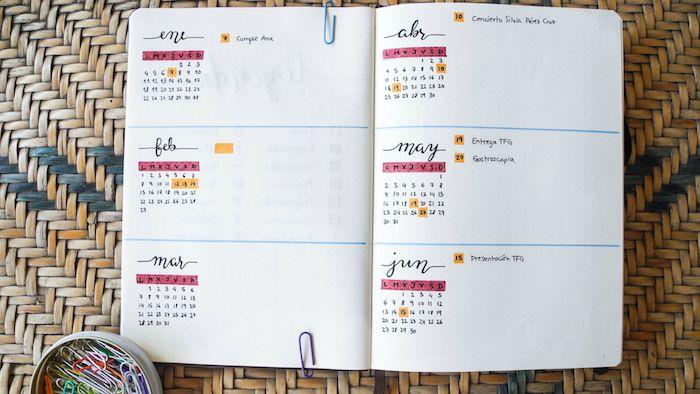 ene
L M X J V S D
1 2 3
4 5 6 7 8 9 10
11 12 13 14 15 16 17
18 19 20 21 22 23 24
25 26 27 28 29 30 31
7 Cumple Ana
feb
L M X J V S D
1 2 3 4 5 6 7
8 9 10 11 12 13 14
15 16 17 18 19 20 21
22 23 24 25 26 27 28
29
mar
L M X J V S D
1 2 3 4 5 6
7 8 9 10 11 12 13
14 15 16 17 18 19 20
21 22 23 24 25 26 27
28 29 30 31
abr
L M X J V S D
1 2 3
4 5 6 7 8 9 10
11 12 13 14 15 16 17
18 19 20 21 22 23 24
25 26 27 28 29 30
10 Concierto Silvia Pérez Cruz
may
L M X J V S D
1
2 3 4 5 6 7 8
9 10 11 12 13 14 15
16 17 18 19 20 21 22
23 24 25 26 27 28 29
30 31
19 Entrega TFG
27 Gastroscopia
jun
L M X J V S D
1 2 3 4 5
6 7 8 9 10 11 12
13 14 15 16 17 18 19
20 21 22 23 24 25 26
27 28 29 30
15 Presentación TFG